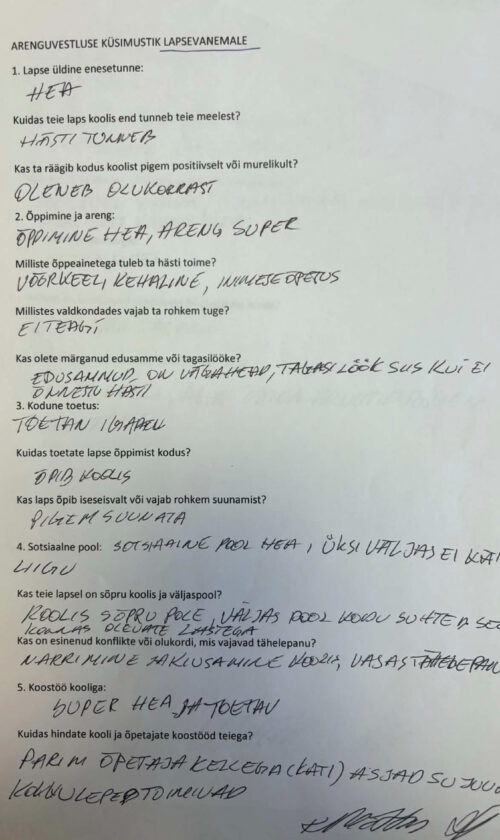 ARENGUVESTLUSE KÜSIMUSTIK LAPSEVANEMALE
1. Lapse üldine enesetunne:
HEA
Kuidas teie laps koolis end tunneb teie meelest?
HÄSTI TUNNEB
Kas ta räägib kodus koolist pigem positiivselt või murelikult?
OLENEB OLUKORRAST
2. Õppimine ja areng:
ÕPPIMINE HEA, ARENG SUPER
Milliste õppeainetega tuleb ta hästi toime?
VÕÕRKEEL, KEHALINE, INIMESEÕPETUS
Millistes valdkondades vajab ta rohkem tuge?
EI TEAGI
Kas olete märganud edusamme või tagasilööke?
EDUSAMMUD, ON VÄGA HEAD, TAGASILÖÖK SIIS KUI EI
ÕNNESTU HÄSTI
3. Kodune toetus:
TOETAN IGAPÄEV
Kuidas toetate lapse õppimist kodus?
ÕPIB KOOLIS
Kas laps õpib iseseisvalt või vajab rohkem suunamist?
PIGEM SUUNATA
4. Sotsiaalne pool: SOTSIAALNE POOL HEA, ÜKSI VÄLJAS EI KÄI
LIIGU
Kas teie lapsel on sõpru koolis ja väljaspool?
KOOLIS SÕPRU POLE, VÄLJAS POOL KODU SUHTEB
KONNAS OLEVATE LASTEGA
Kas on esinenud konflikte või olukordi, mis vajavad tähelepanu?
NARRIMINE JA KIUSAMINE KOOLIS, VAJAS TÄHELEPAN
5. Koostöö kooliga:
SUPER HEA JA TOETAV
Kuidas hindate kooli ja õpetajate koostööd teiega?
PARIM ÕPETAJA KELLEGA (KATI) ASJAD SUJUV
KOKKULEPED TOIMIVAD